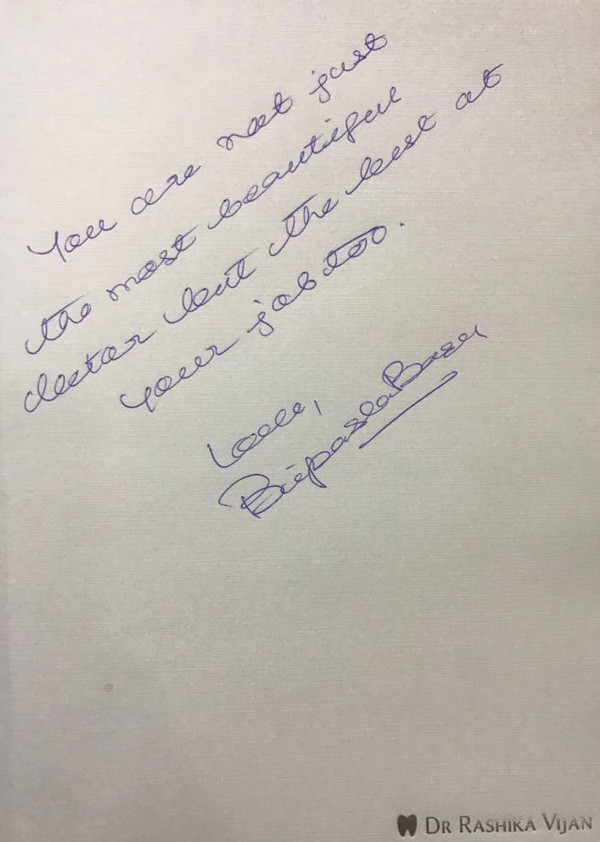 You are not just
the most beautiful
doctor but the best at
your job too.
Love,
Bipasha Basu
DR RASHIKA VIJAN